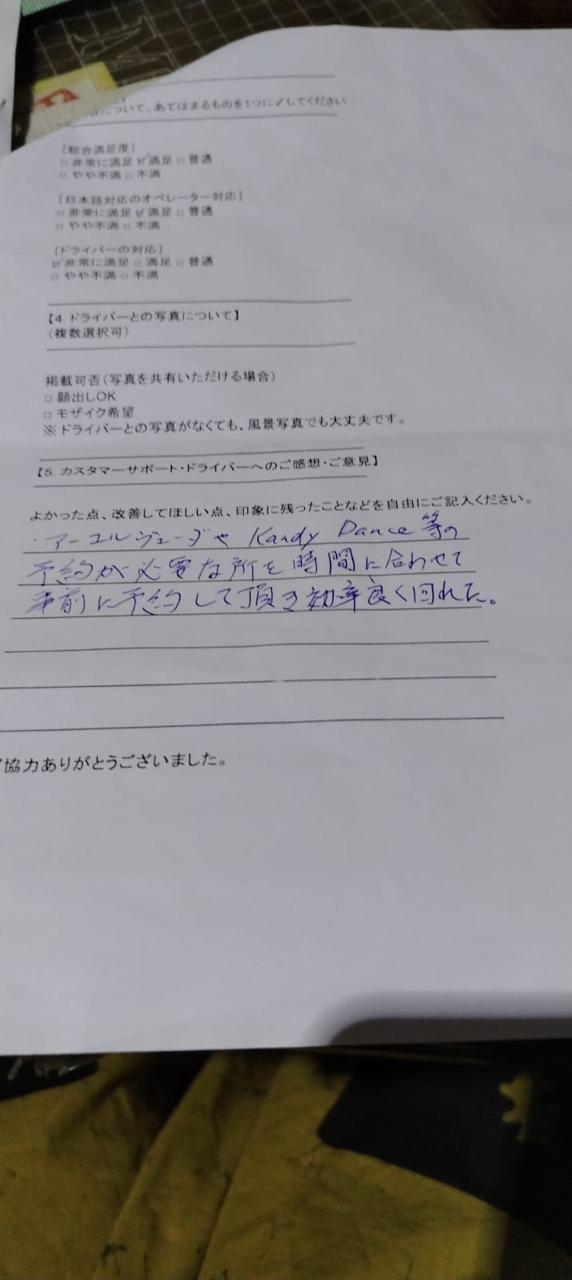 について、あてはまるものを1つに✓してください
[総合満足度]
□ 非常に満足 ☑ 満足 □ 普通
□ やや不満 □ 不満
[日本語対応のオペレーター対応]
□ 非常に満足 ☑ 満足 □ 普通
□ やや不満 □ 不満
[ドライバーの対応]
☑ 非常に満足 □ 満足 □ 普通
□ やや不満 □ 不満
【4. ドライバーとの写真について】
(複数選択可)
掲載可否(写真を共有いただける場合)
□ 顔出しOK
□ モザイク希望
※ドライバーとの写真がなくても、風景写真でも大丈夫です。
【5. カスタマーサポート・ドライバーへのご感想・ご意見】
よかった点、改善してほしい点、印象に残ったことなどを自由にご記入ください。
・アーユルヴェーダや Kandy Dance 等の
予約が必要な所を時間に合わせて
事前に予約して頂き効率良く回れた。
協力ありがとうございました。